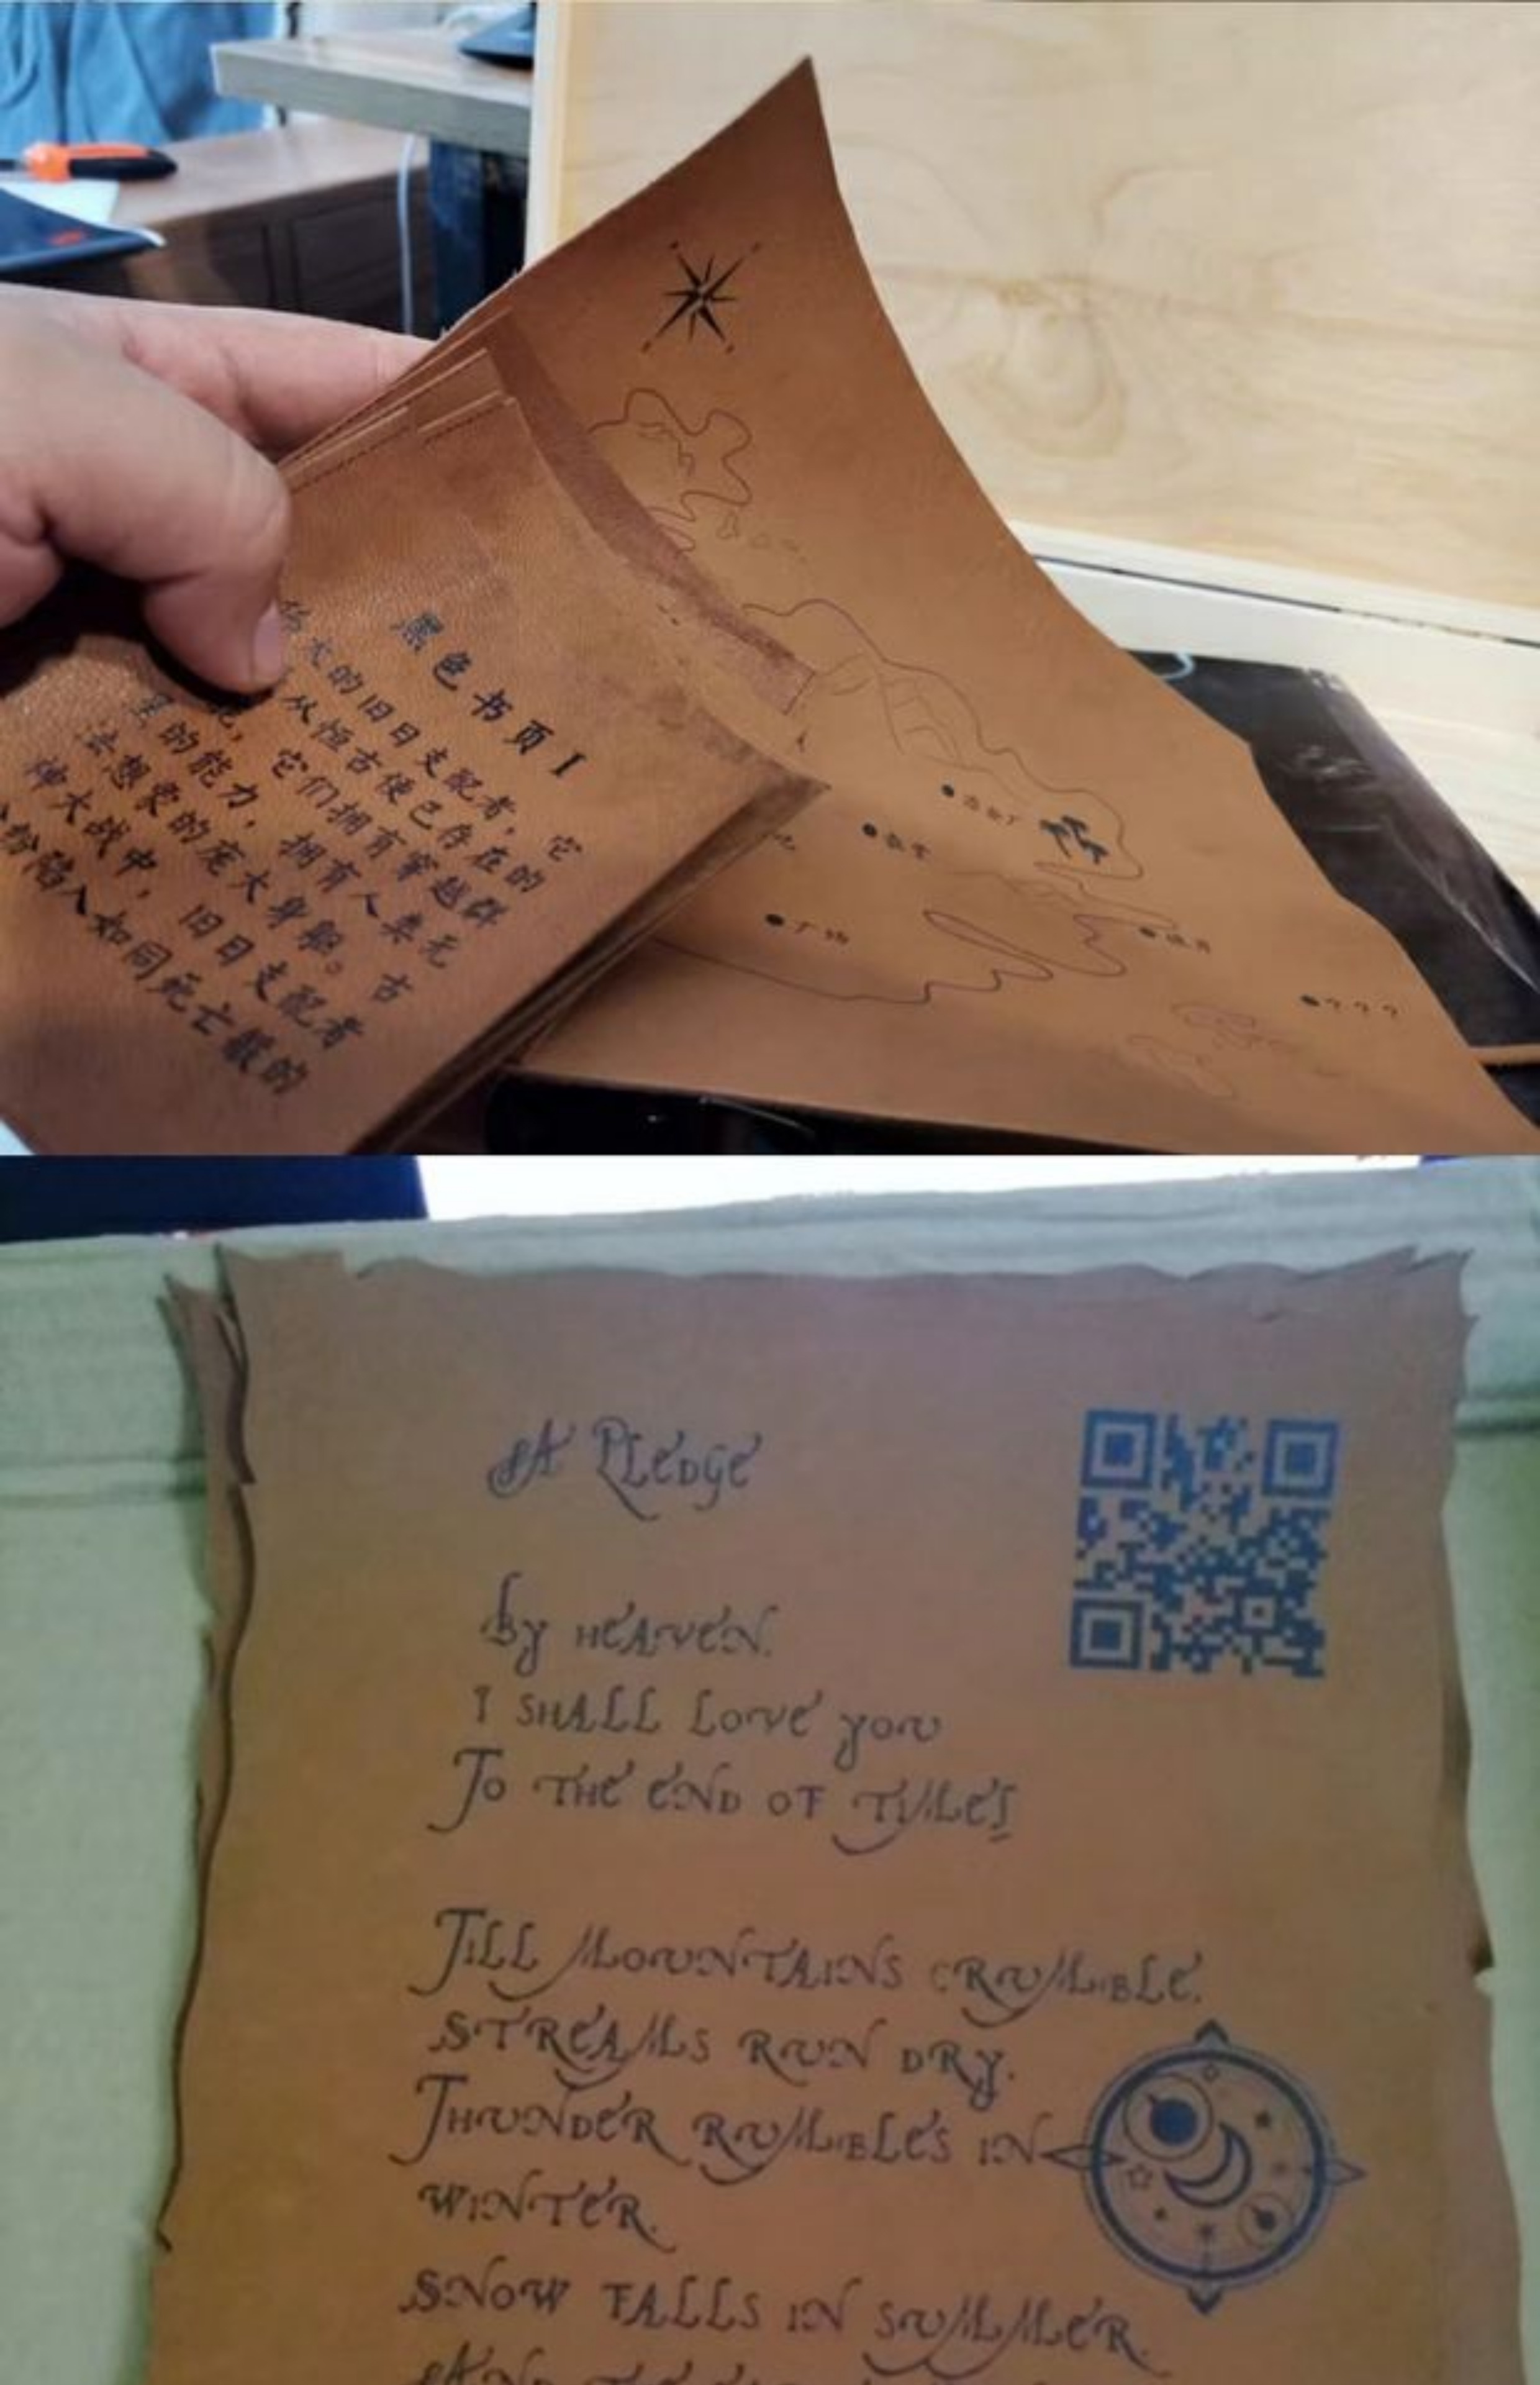 黑色书页I
大的旧日支配者，它
从恒古便已存在的
它们拥有穿越群
的能力，拥有人类无
法想象的庞大身躯。古
神大战中，旧日支配者
纷纷陷入如同死亡般的
广场
???
A Pledge
by HEAVEN.
I SHALL LOVE you
To THE END OF TIMES
TILL MOUNTAINS CRUMBLE.
STREAMS RUN DRY.
THUNDER RUMBLES IN
WINTER.
SNOW FALLS IN SUMMER.